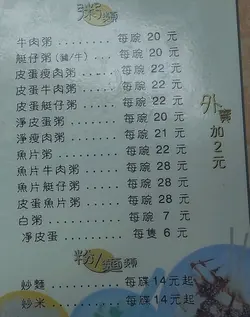 粥類
牛肉粥 ........ 每碗 20 元
艇仔粥(鹹/牛) ... 每碗 20 元
皮蛋瘦肉粥 ..... 每碗 22 元
皮蛋牛肉粥 ..... 每碗 22 元
皮蛋艇仔粥 ..... 每碗 22 元
淨皮蛋粥 ....... 每碗 20 元
淨瘦肉粥 ....... 每碗 21 元
魚片粥 ......... 每碗 22 元
魚片牛肉粥 ..... 每碗 28 元
魚片艇仔粥 ..... 每碗 28 元
皮蛋魚片粥 ..... 每碗 28 元
白粥 ........... 每碗 7 元
淨皮蛋 ......... 每隻 6 元
外賣加2元
粉/麵類
炒麵 .......... 每碟 14元起
炒米 .......... 每碟 14元起